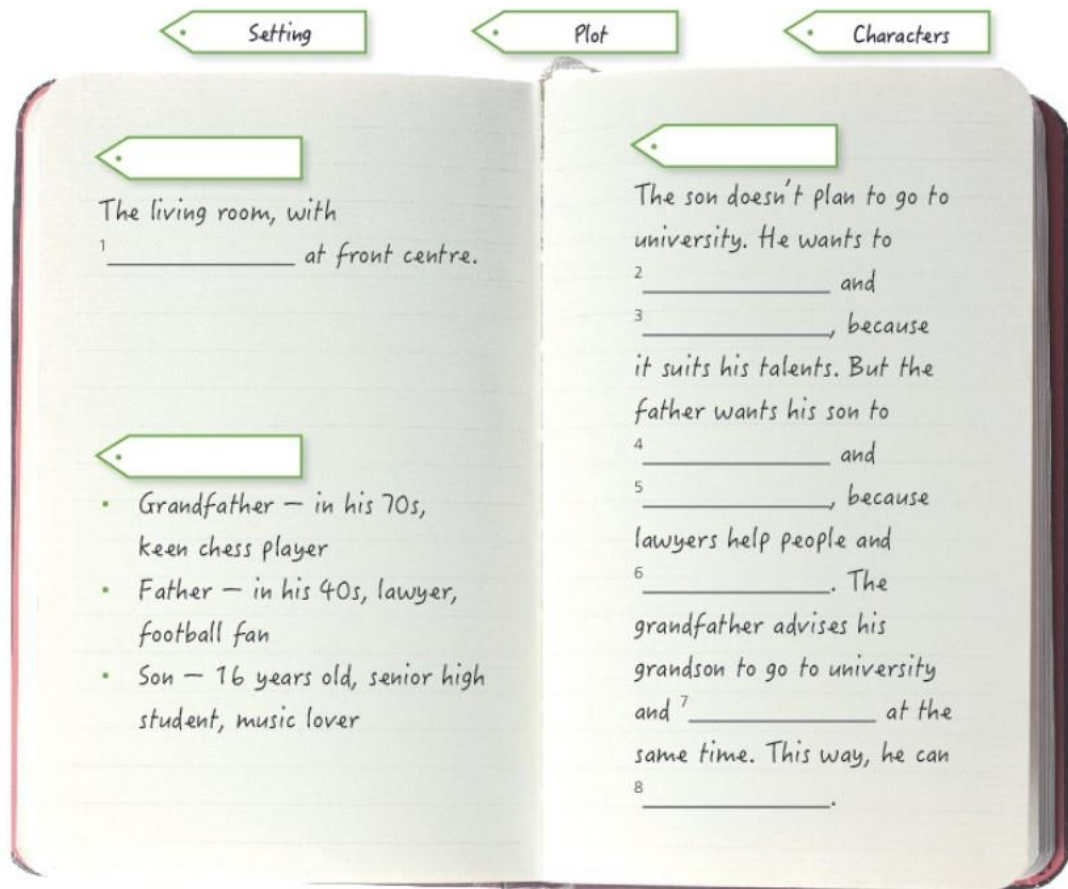 Setting
Plot
Characters
The living room, with
1 ____________ at front centre.
• Grandfather — in his 70s,
keen chess player
• Father — in his 40s, lawyer,
football fan
• Son — 16 years old, senior high
student, music lover
The son doesn't plan to go to
university. He wants to
2 ____________ and
3 ____________, because
it suits his talents. But the
father wants his son to
4 ____________ and
5 ____________, because
lawyers help people and
6 ____________. The
grandfather advises his
grandson to go to university
and 7 ____________ at the
same time. This way, he can
8 ____________.